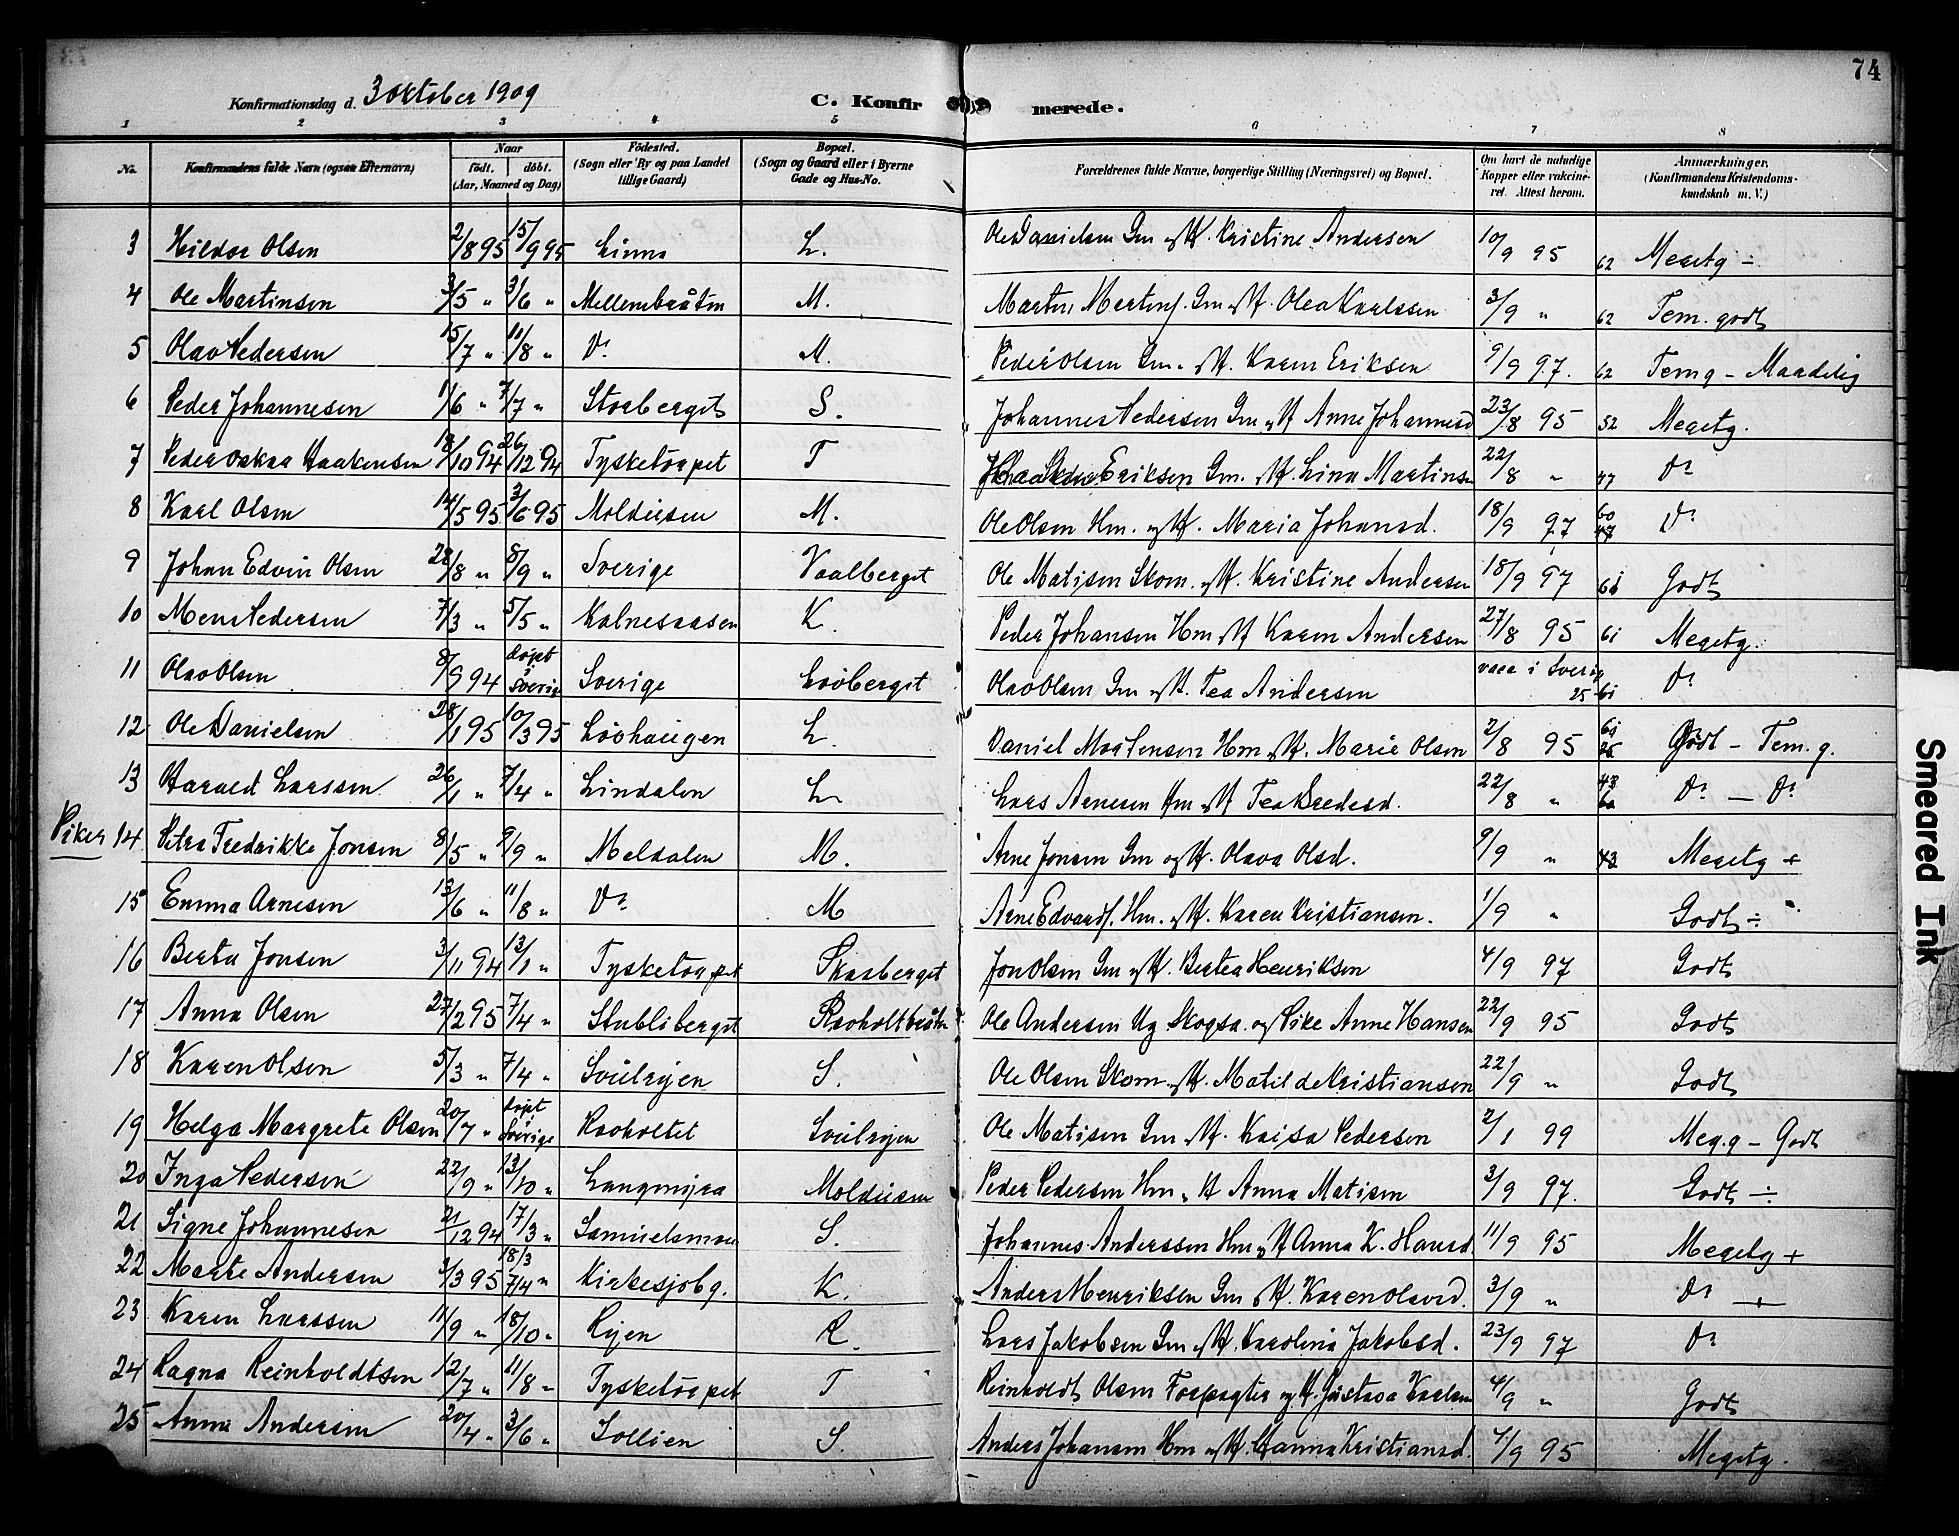 74
Konfirmationsdag d. 3 oktober 1909 C. Konfirmerede.
1 2 3 4 5 6 7 8
No. Konfirmandens fulde Navn (ogsaa Efternavn) Naar født. døbt. (Aar, Maaned og Dag) Fødested. (Sogn eller By og paa Landet tillige Gaard) Bopæl. (Sogn og Gaard eller i Byerne Gade og Hus-No. Forældrenes fulde Navne, borgerlige Stilling (Næringsvei) og Bopæl. Om havt de naturlige Kopper eller vakcineret. Attest herom. Anmærkninger. (Konfirmandens Kristendomskundskab m. V.)
3 Hildor Olsen 2/8 95 15/9 95 Linna L. Ole Danielsen Gm og H. Kristine Andersen 10/9 95 62 Megetg ÷
4 Ole Martinsen 3/5 " 3/6 " Mellembråten M. Martin Martins. Gm og H. Olea Karlssen 3/9 " 62 Tem. godt
5 Olav Pedersen 15/7 " 11/8 " Do M. Peder Olsen Gm. og H. Karen Eriksen 9/9 97. 62 Temg - Maadelig
6 Peder Johannesen 1/6 " 7/7 " Storberget S. Johannes Pedersen Gm og H Anne Johannesd 23/8 95 52 Megetg.
7 Peder Oskar Haakensen 18/10 94 26/12 94 Tysketorpet T Eriksen Gm. og H. Lina Martins 22/8 " 47 Do
8 Karl Olsen 14/5 95 3/6 95 Moldusen M. Ole Olsen Hm. og H. Maria Johansd. 18/9 97 60 47 Do
9 Johan Edvin Olsen 28/8 " 8/9 " Sverige Vaalberget Ole Matisen Skom. og H. Kristine Andersen 18/9 97 61 Godt
10 Mens Pedersen 7/3 " 5/5 " Kalnesaasen K. Peder Johansen Hm og H Karen Andersen 27/8 95 61 Megetg.
11 Olav Olsen 8/9 94 døpt i Sverige Sverige Løvberget Olav Olsen Gm og H. Tea Andersen vacc i Sverig 25 61 Do
12 Ole Danielsen 28/1 95 10/3 95 Løvhaugen L. Daniel Mortensen Hm og H. Marie Olsen 2/8 95 61 25 Godt - Tem. g.
13 Harald Larssen 26/1 " 7/4 " Lindalen L Lars Arnesen Hm og H Tea Pedersd. 22/8 " 43 60 Do - Do
Piker 14 Petra Fredrikke Jonsen 8/5 " 9/9 " Meldalen M. Arne Jonsen Gm og H. Olava Olsd. 9/9 " 43 Megetg +
15 Emma Arnesen 13/6 " 11/8 " Do M Arne Edvards. Hm. og H. Karen Kristiansen. 1/9 " Godt ÷
16 Berta Jonsen 3/11 94 13/1 " Tysketorpet Skarberget Jon Olsen Gm og H. Bertea Henriksen 4/9 97 Godt
17 Anna Olsen 27/2 95 7/4 " Stubliberget Ravholtbråtn Ole Andersen Ug. Skogsa. og Pike Anne Hansen 22/9 95 Godt
18 Karen Olsen 5/3 " 7/4 " Svulryen S. Ole Olsen Skom. og H. Matilde Kristiansen 22/9 " Godt
19 Helga Margrete Olsen 20/7 " døpt Sverige Ravholtet Svulryen Ole Matisen Gm og H. Kajsa Pedersen 2/1 99 Meg.g - Godt
20 Inga Pedersen 22/9 " 13/10 " Langmyra Moldusen Peder Pedersen Hm og H Anna Matisen 3/9 97. Godt ÷
21 Signe Johannesen 21/12 94 17/3 " Samuelsmoen S. Johannes Anderssen Hm og H Anna K. Hansd. 11/9 95 Megetg +
22 Marte Andersen 3/3 95 18/3 7/4 " Kirkesjøbg. K. Anders Henriksen Gm og H. Karen Olavsd. 3/9 " Do +
23 Karen Larssen 11/9 " 18/10 " Ryen R. Lars Jakobsen Gm og H. Karolina Jakobsd. 23/9 97 Do
24 Ragna Reinholdtsen 12/7 " 11/8 " Tysketorpet T Reinholdt Olsen Forpagter og H. Gustava Karlsen 4/9 " Godt
25 Anna Andersen 20/4 " 3/6 " Sollien S. Anders Johansen Hm og H. Hanna Kristiansd. 4/9 95 Megetg.
Smeared Ink